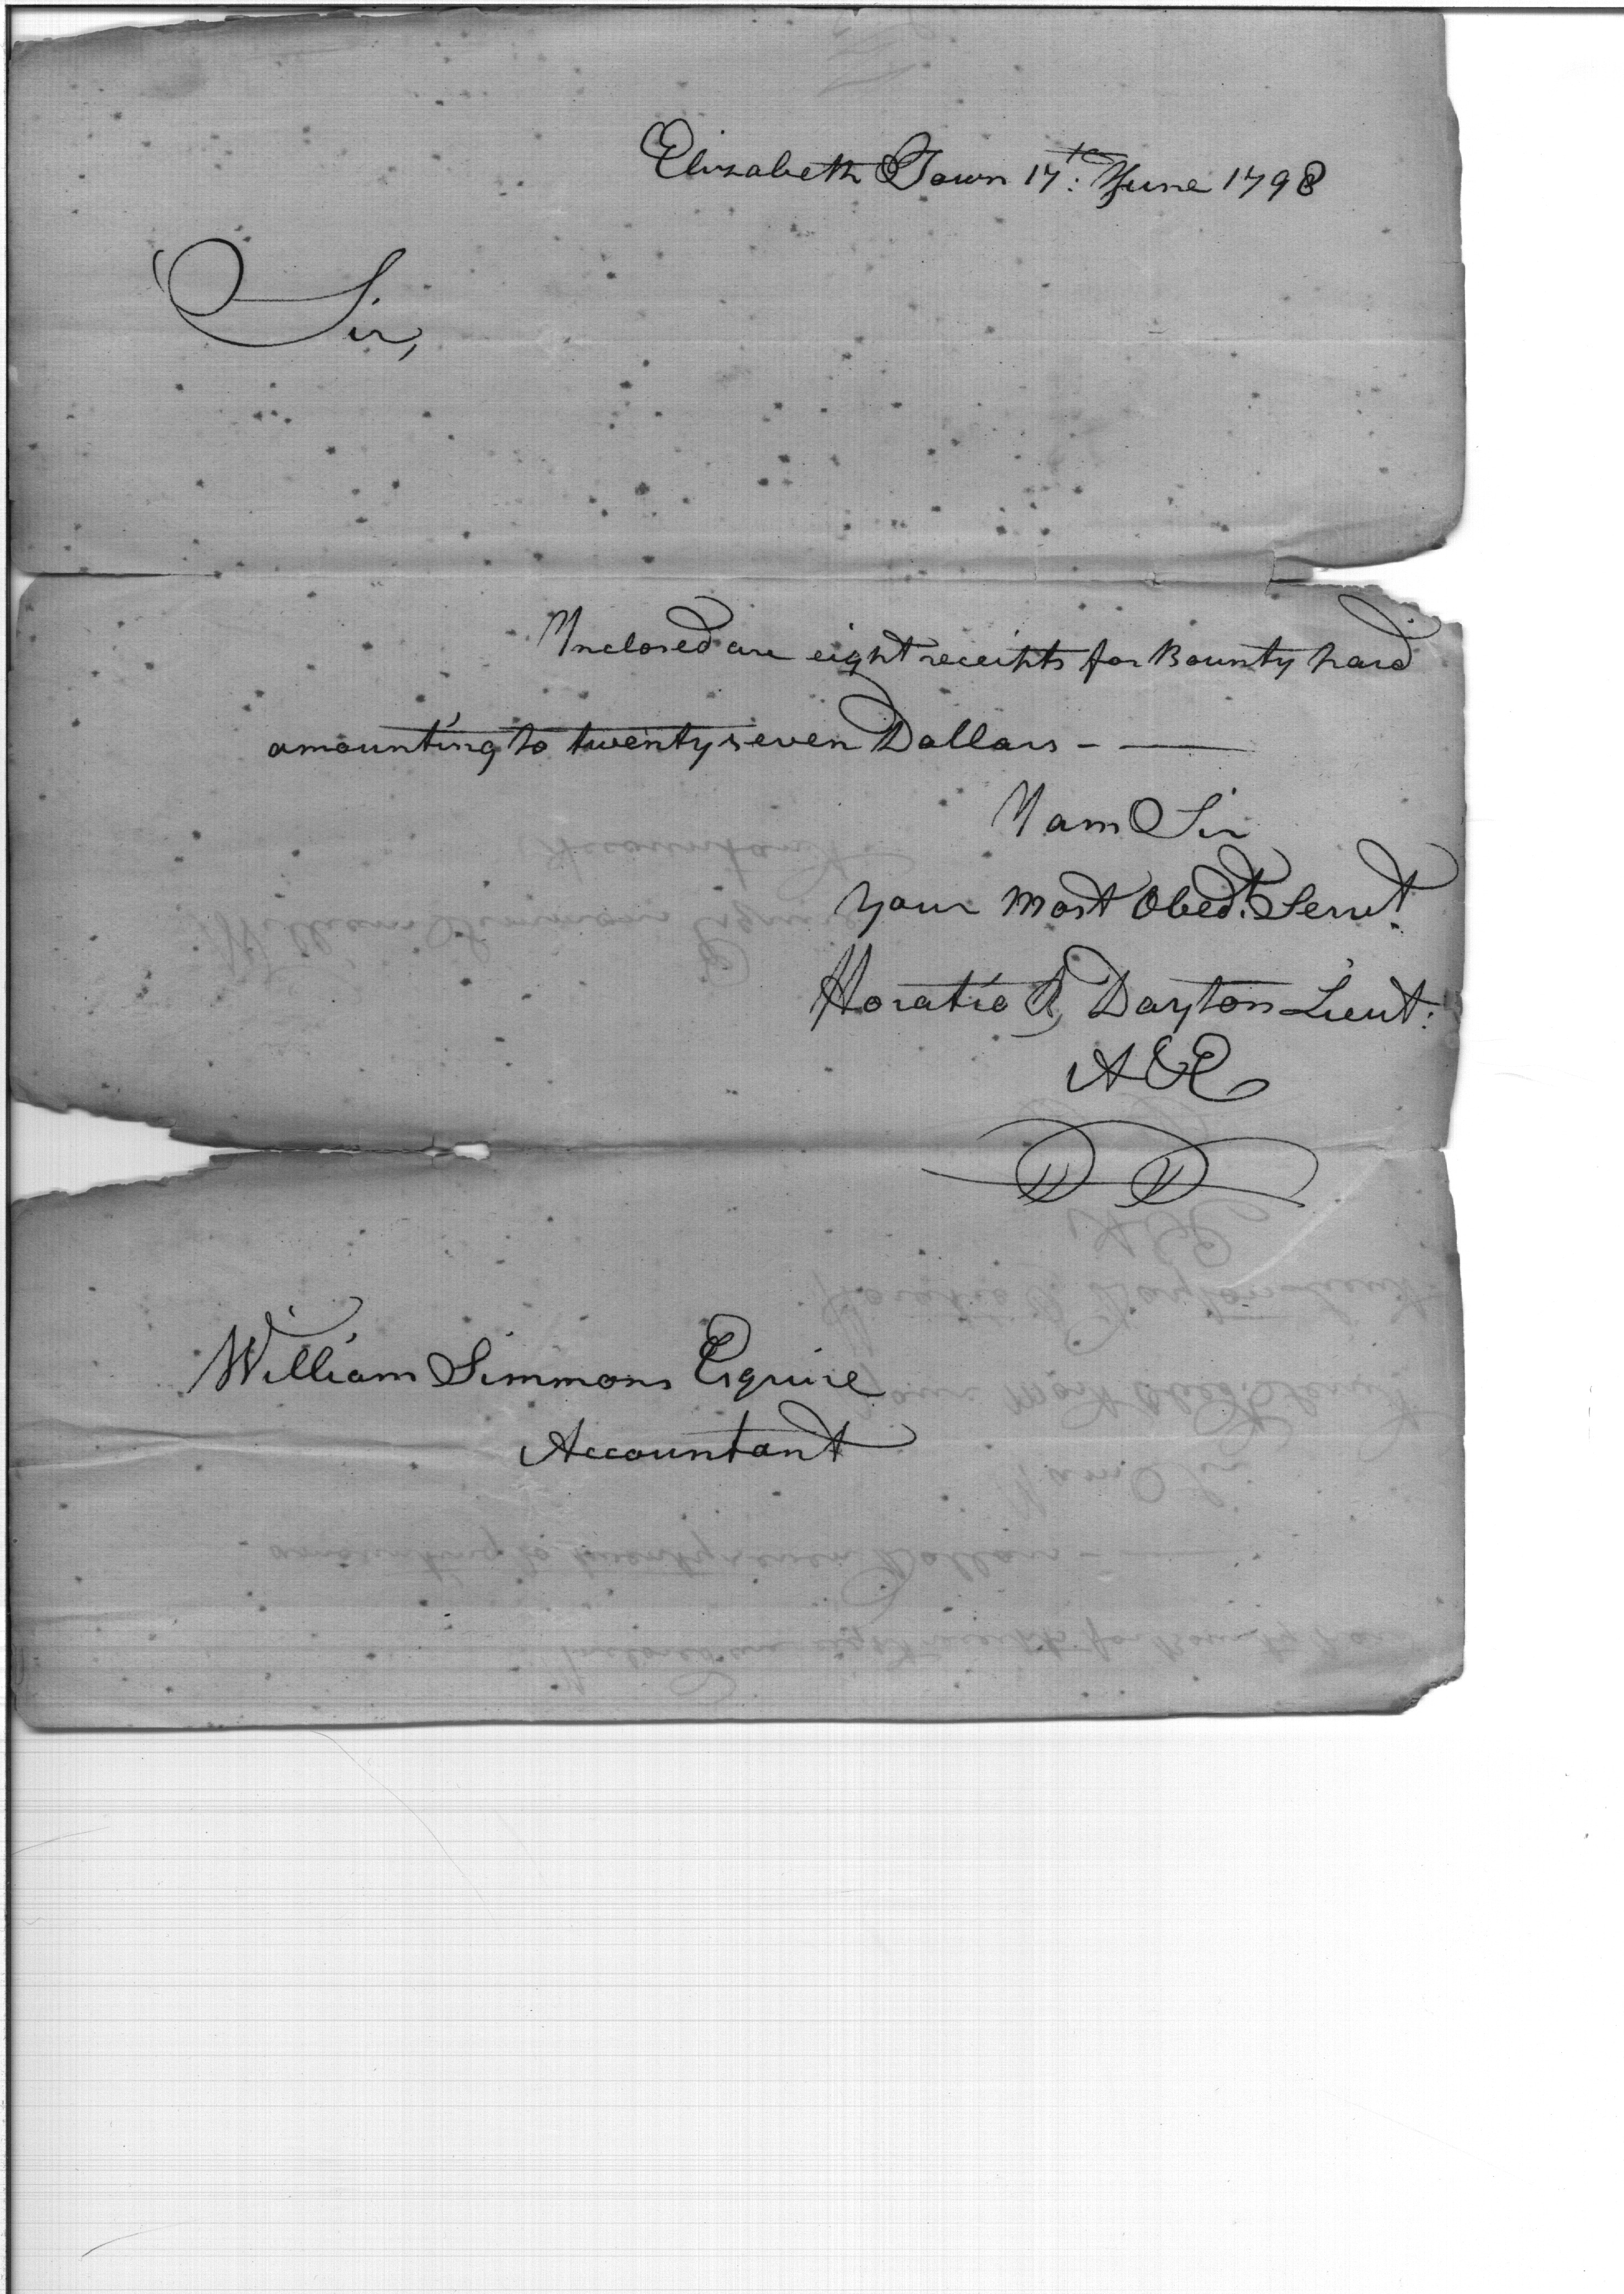 Elizabeth Town 17.th June 1798
Sir,
Inclosed are eight receipts for Bounty paid
amounting to twenty seven Dollars - —
I am Sir
your most Obedt. Servt.
Horatio R, Dayton Lieut:
A&E
William Simmons Esquire
Accountant